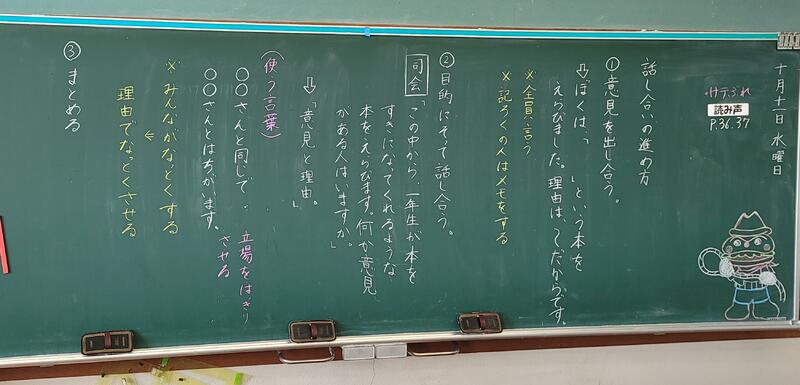 十月十日 水曜日
・サテふれ
読み声
P.36.37
話し合いの進め方
①意見を出し合う。
⇩ぼくは、「　　」という本を
えらびました。理由は、〜だからです。
※全員言う
※記ろくの人はメモをする
②目的にそって話し合う。
司会「この中から、一年生が本を
すきになってくれるような
本をえらびます。何か意見
がある人はいますか。」
⇩「意見と理由。」
(使う言葉)
〇〇さんと同じで…
〇〇さんとはちがいます。
立場をはっきり
させる
※みんながなっとくする
↓
理由でなっとくさせる
③まとめる